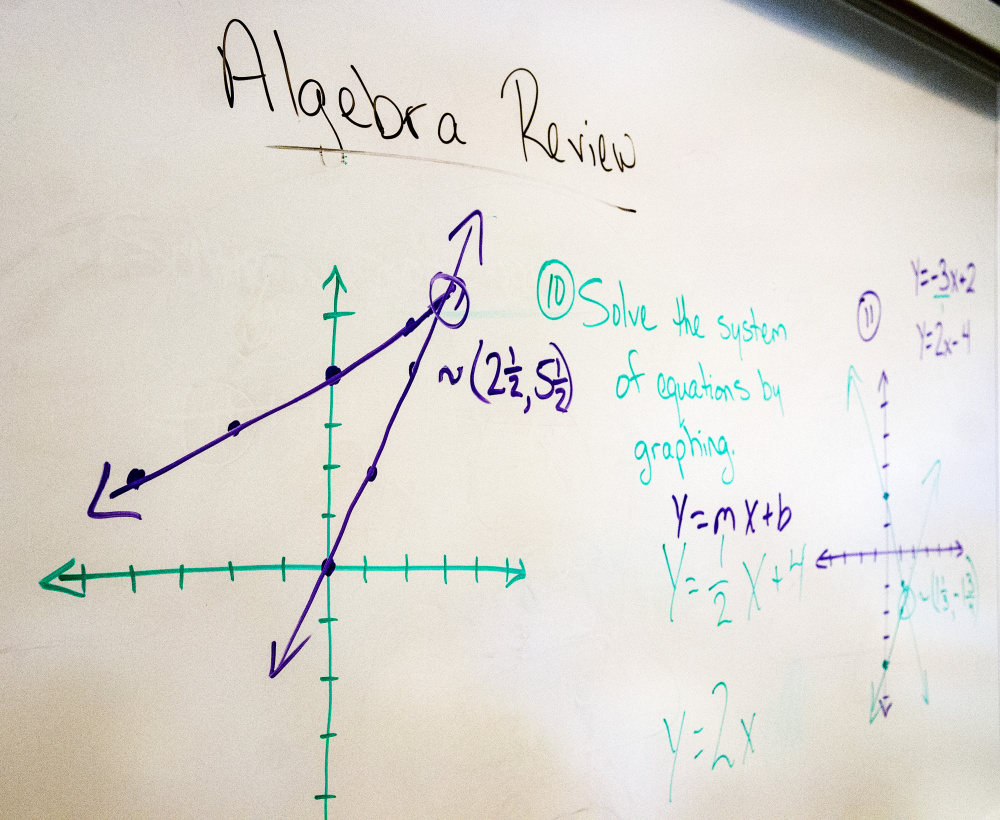 Algebra Review
~(2½, 5½)
⑩ Solve the system
of equations by
graphing.
Y=mX+b
Y=½X+4
Y=2X
⑪
Y=-3x+2
Y=2x-4